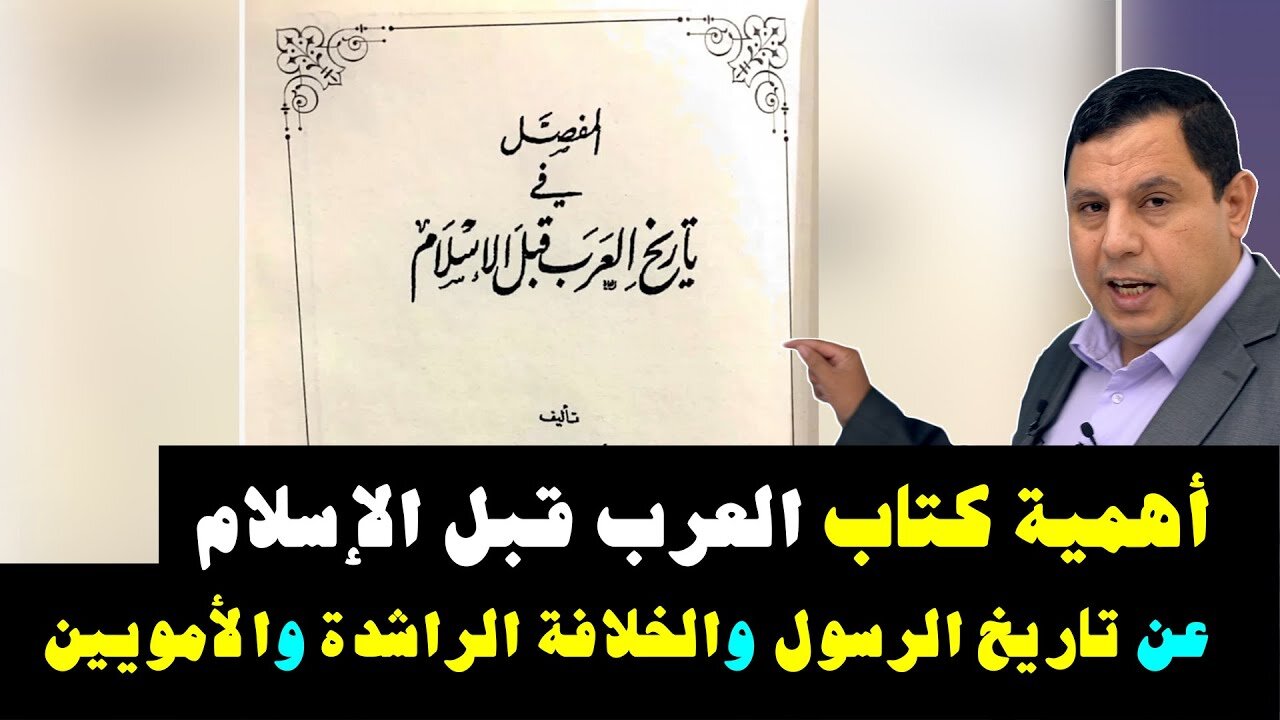 المفصَّل
في
تاريخ العرب قبل الإسلام
تأليف
أهمية كتاب العرب قبل الإسلام
عن تاريخ الرسول والخلافة الراشدة والأمويين